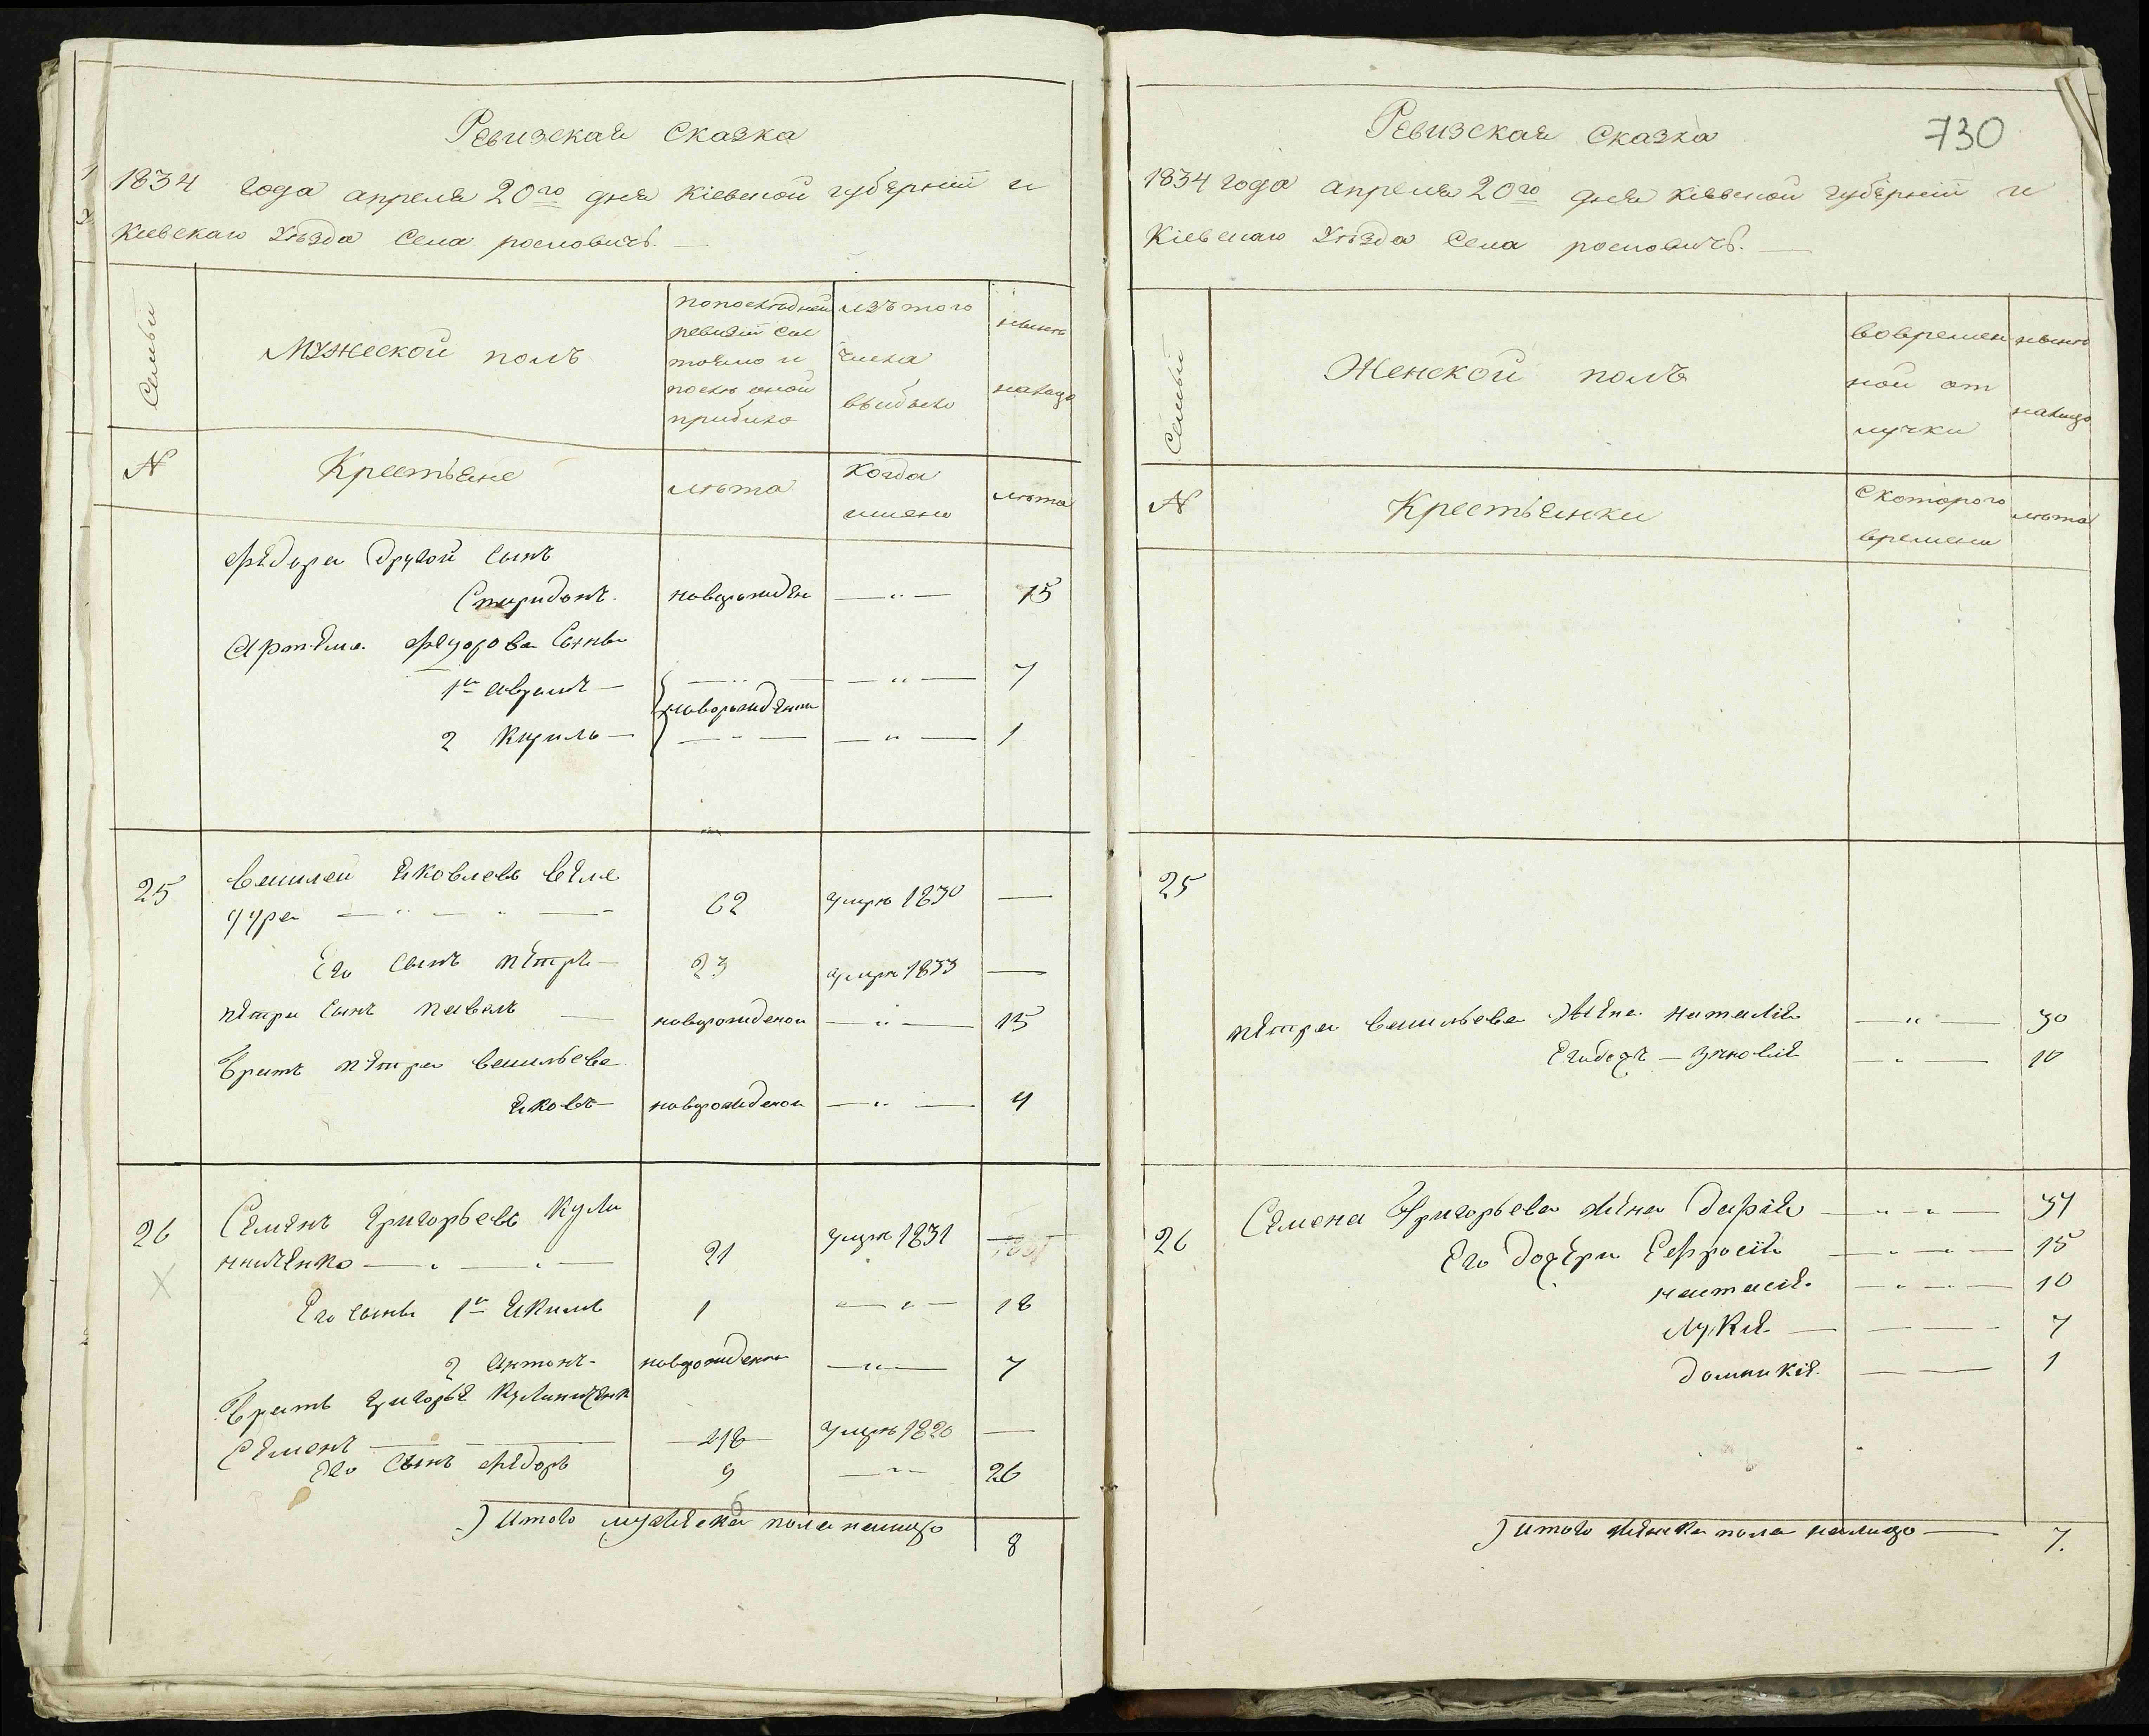 Ревизская Сказка
1834 года апреля 20го дня Кіевской губерніи и
Кіевскаго Уѣзда Села росновичъ.
Семьи
Мужеской полъ
попослѣдней
ревизіи сос
тояло и
послѣ оной
прибыло
Изътого
числа
выбыло
нынѣ
налицо
N
Крестьяне
лѣта
Когда
имено
лѣта
Фѣдора другой сынъ
Спиридонъ.
новорожден
15
Артема Федорова Сыны
1й аврамъ
7
новорожденни
2 Кирилъ
1
25
Василей Яковлевъ
62
умре 1830
Его сынъ пѣтръ
23
умре 1833
пѣтра сынъ павелъ
новорожденои
15
братъ пѣтра васильева
Яковъ
новорожденои
4
26
Семенъ григорьевъ Кули
ниченко
21
умре 1831
Его сыны 1й Якимъ
1
18
2 антонъ
новорожденои
7
братъ григорья Кулиниченк
Семенъ
48
умре 1820
Его сынъ фѣдоръ
9
26
Итого мужеска пола налицо
8
730
Ревизская Сказка
1834 года апреля 20го дня Кіевской губерніи и
Кіевскаго Уѣзда Села росновичъ.
Семьи
Женской полъ
вовремен
ной от
лучки
нынѣ
налицо
N
Крестьянки
Скоторого
времени
лѣта
25
пѣтра васильева жена наталія
30
зѣновія
10
26
Семена Григорьева жена Дарія
37
Его дочери Ефросія
15
настасія
10
Лукія
7
домникія.
1
итого женска пола налицо
7.